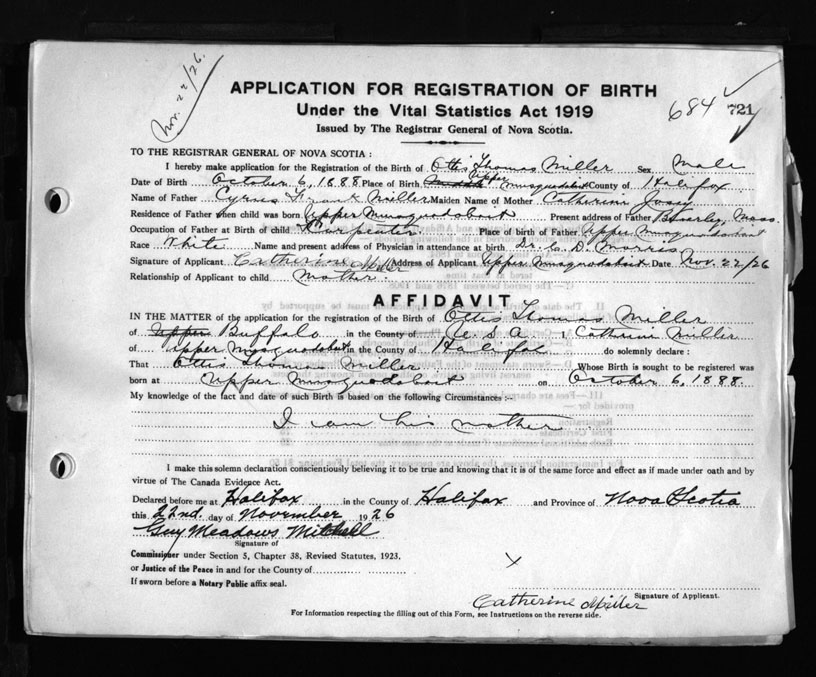 Nov. 22/26.
APPLICATION FOR REGISTRATION OF BIRTH
684 721
Under the Vital Statistics Act 1919
Issued by The Registrar General of Nova Scotia.
TO THE REGISTRAR GENERAL OF NOVA SCOTIA :
I hereby make application for the Registration of the Birth of Ottis Thomas Miller Sex Male
Date of Birth October 6, 1888 Place of Birth Upper Musquodoboit County of Halifax
Name of Father Cyrus Frank Miller Maiden Name of Mother Catherine
Residence of Father when child was born Upper Musquodoboit Present address of Father Beverley, Mass.
Occupation of Father at Birth of child Carpenter Place of birth of Father Upper Musquodoboit
Race White Name and present address of Physician in attendance at birth Dr. C. D. Morris
Signature of Applicant Catherine Miller Address of Applicant Upper Musquodoboit Date Nov. 22/26
Relationship of Applicant to child mother.
AFFIDAVIT
IN THE MATTER of the application for the registration of the Birth of Ottis Thomas Miller
of Upper Buffalo in the County of U.S.A. I Catherine Miller
of Upper Musquodoboit in the County of Halifax do solemnly declare :
That Ottis Thomas Miller Whose Birth is sought to be registered was
born at Upper Musquodoboit on October 6, 1888.
My knowledge of the fact and date of such Birth is based on the following Circumstances :—
I am his mother.
I make this solemn declaration conscientiously believing it to be true and knowing that it is of the same force and effect as if made under oath and by
virtue of The Canada Evidence Act.
Declared before me at Halifax in the County of Halifax and Province of Nova Scotia
this 22nd. day of November 1926
Guy Meadows Mitchell
Signature of
Commissioner under Section 5, Chapter 38, Revised Statutes, 1923.
or Justice of the Peace in and for the County of
If sworn before a Notary Public affix seal.
X
Signature of Applicant.
Catherine Miller
For Information respecting the filling out of this Form, see Instructions on the reverse side.